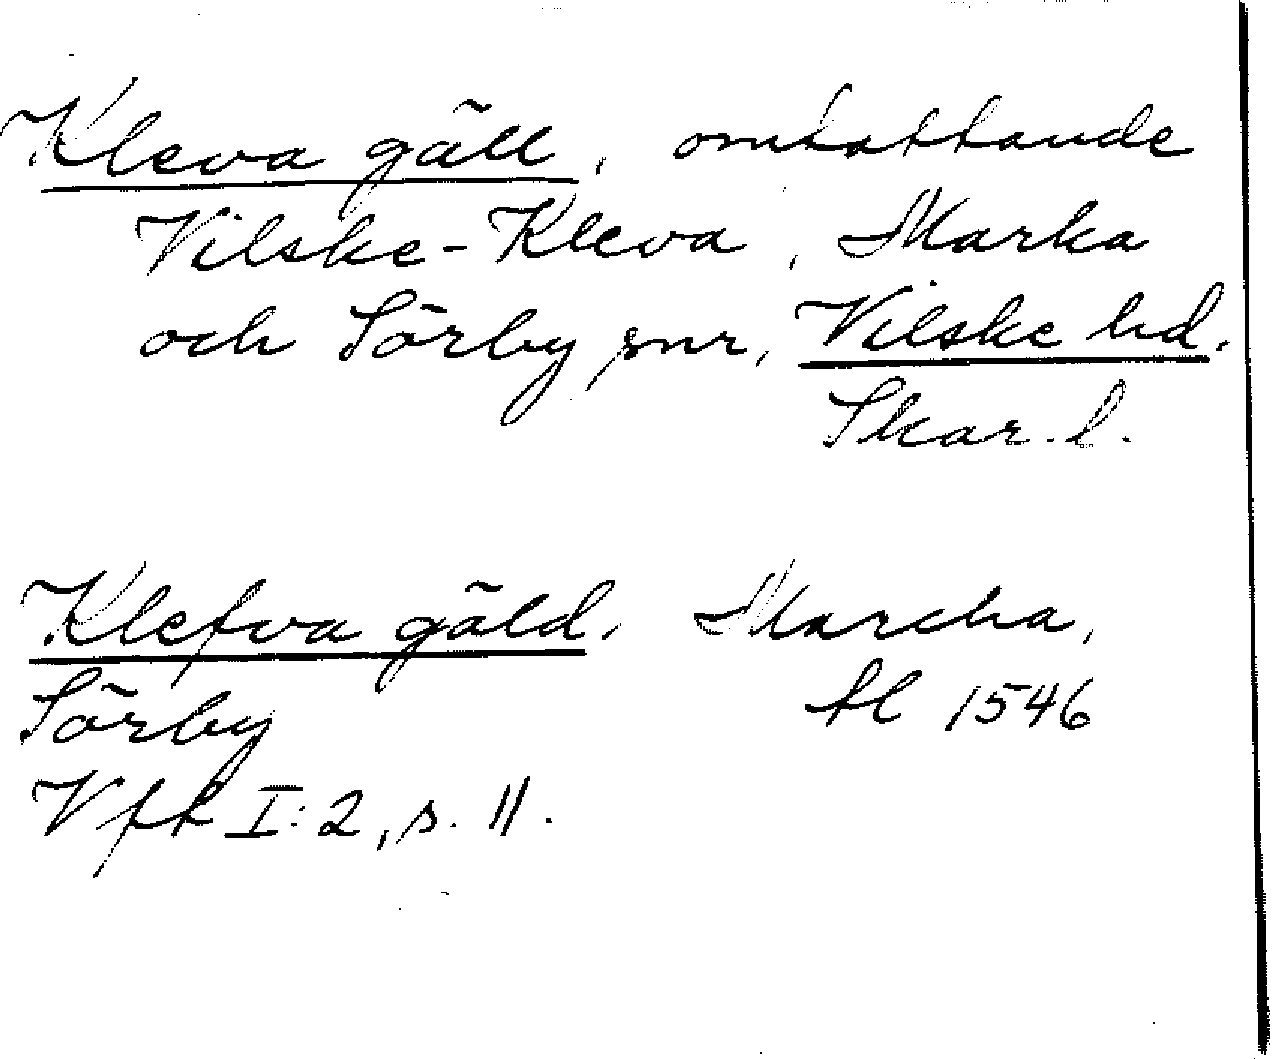 Kleva gäll, omfattande
Vilske-Kleva, Marka
och Sörby snr, Vilske hd.
Skar. l.
Klefva gäld, Marcha,
Sörby fl 1546
Vfk I:2, s. 11.